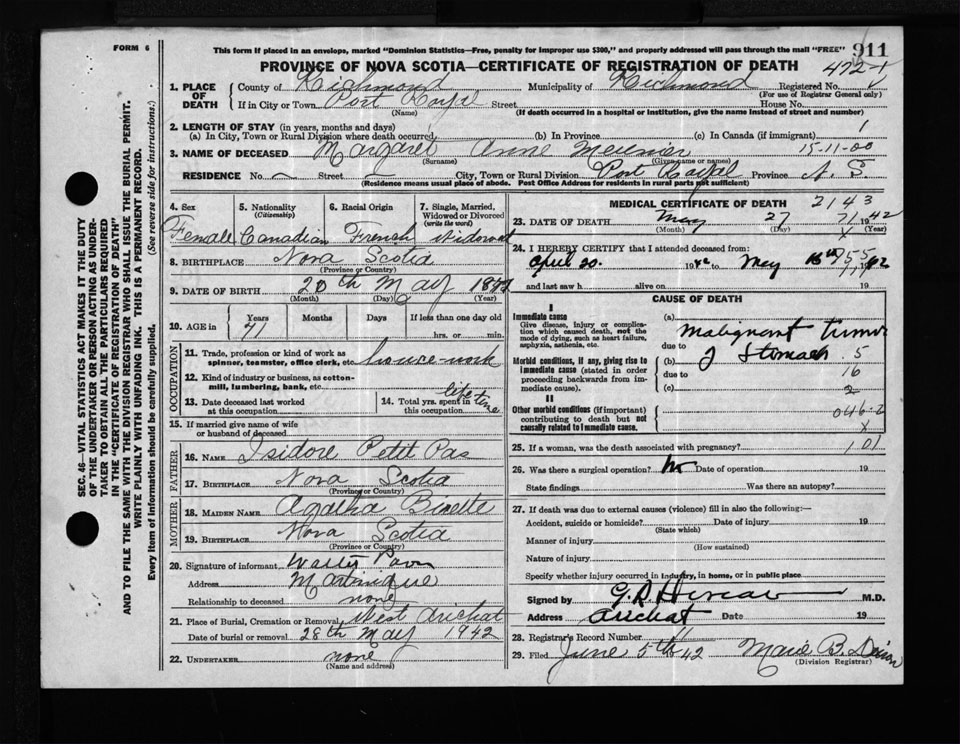 FORM 6
This form if placed in an envelope, marked "Dominion Statistics—Free, penalty for improper use $300," and properly addressed will pass through the mail "FREE"
911
PROVINCE OF NOVA SCOTIA—CERTIFICATE OF REGISTRATION OF DEATH
472-1
1. PLACE OF DEATH
County of Richmond Municipality of Richmond Registered No.
(For use of Registrar General only)
If in City or Town Port Royal Street House No.
(Name) (If death occurred in a hospital or institution, give the name instead of street and number)
2. LENGTH OF STAY (in years, months and days)
(a) In City, Town or Rural Division where death occurred (b) In Province (c) In Canada (if immigrant) 1
3. NAME OF DECEASED Margaret Anne Meunier 15-11-00
(Surname) (Given name or names)
RESIDENCE No. Street City, Town or Rural Division Port Royal Province N. S.
(Residence means usual place of abode. Post Office Address for residents in rural parts not sufficient)
SEC. 46—VITAL STATISTICS ACT MAKES IT THE DUTY
OF THE UNDERTAKER OR PERSON ACTING AS UNDER-
TAKER TO OBTAIN ALL THE PARTICULARS REQUIRED
IN THE "CERTIFICATE OF REGISTRATION OF DEATH"
AND TO FILE THE SAME WITH THE DIVISION REGISTRAR WHO SHALL ISSUE THE BURIAL PERMIT.
WRITE PLAINLY WITH UNFADING INK. THIS IS A PERMANENT RECORD.
Every item of information should be carefully supplied. (See reverse side for instructions.)
4. Sex 5. Nationality (Citizenship) 6. Racial Origin 7. Single, Married, Widowed or Divorced (write the word)
Female Canadian French Widowed
8. BIRTHPLACE Nova Scotia
(Province or Country)
9. DATE OF BIRTH 20th May
(Month) (Day) (Year)
10. AGE in Years Months Days If less than one day old
71 hrs. or min.
OCCUPATION
11. Trade, profession or kind of work as spinner, teamster, office clerk, etc. house-work
12. Kind of industry or business, as cotton-mill, lumbering, bank, etc.
13. Date deceased last worked at this occupation
14. Total yrs. spent in this occupation life time
15. If married give name of wife or husband of deceased
FATHER
16. NAME Isidore Petit Pas
17. BIRTHPLACE Nova Scotia
(Province or Country)
MOTHER
18. MAIDEN NAME Agatha Binette
19. BIRTHPLACE Nova Scotia
(Province or Country)
20. Signature of informant Walter
Address Martinique
Relationship to deceased none
21. Place of Burial, Cremation or Removal West Arichat
Date of burial or removal 28th May 1942
22. UNDERTAKER none
(Name and address)
MEDICAL CERTIFICATE OF DEATH 2143
23. DATE OF DEATH May 27 71 1942
(Month) (Day) X
24. I HEREBY CERTIFY that I attended deceased from:
April 20. 19 to May 16th
and last saw h alive on 19
CAUSE OF DEATH
I
Immediate cause
Give disease, injury or complication which caused death, not the mode of dying, such as heart failure, asphyxia, asthenia, etc.
Morbid conditions, if any, giving rise to immediate cause (stated in order proceeding backwards from immediate cause).
II
Other morbid conditions (if important) contributing to death but not causally related to immediate cause.
(a) malignant tumor
due to
(b) of Stomach 5
due to 16
(c) 2
046-2
X
25. If a woman, was the death associated with pregnancy? 101
26. Was there a surgical operation? No Date of operation 19
State findings Was there an autopsy?
27. If death was due to external causes (violence) fill in also the following:—
Accident, suicide or homicide? Date of injury 19
(State which)
Manner of injury
(How sustained)
Nature of injury
Specify whether injury occurred in industry, in home, or in public place
Signed by M.D.
Address Arichat Date 19
28. Registrar's Record Number 11
29. Filed June 5th 42 Marie B.
(Division Registrar)